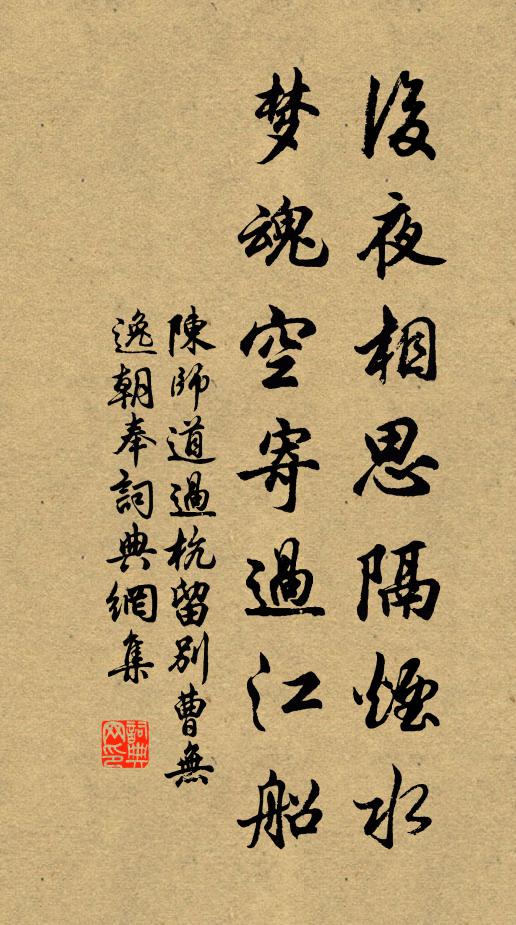 後夜相思隔煙水
梦魂空寄過江船
陳師道過杭留別曹無
逸朝奉詞典網集
詞典
网印